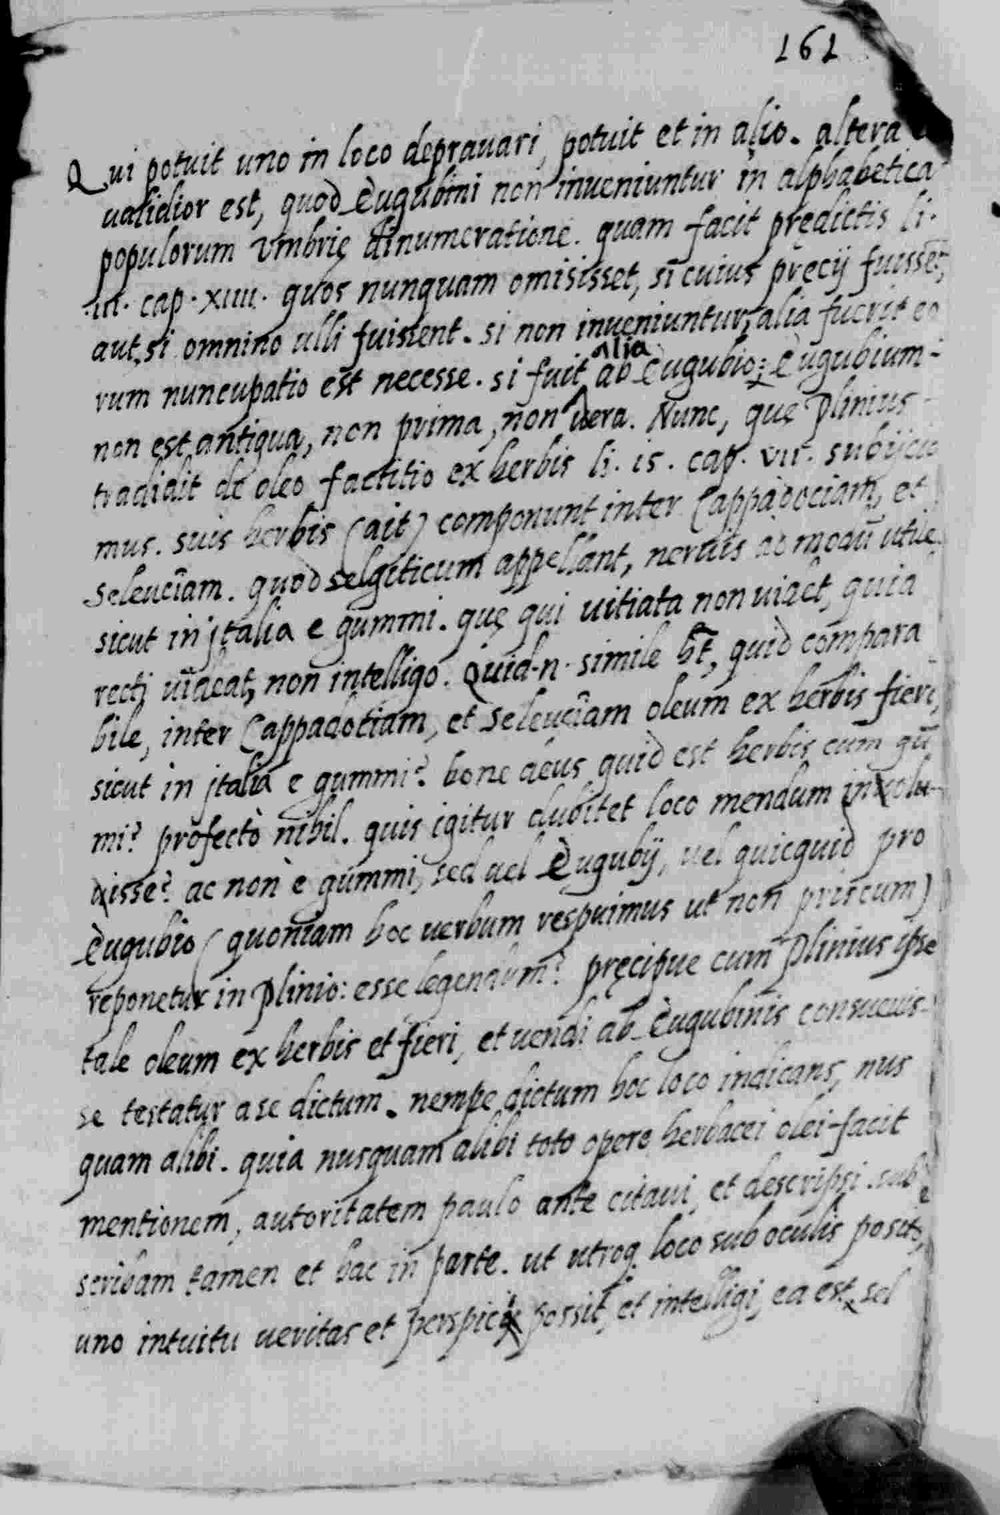 161
Qui potuit uno in loco deprauari, potuit et in alio. altera
ualidior est, quod Èugubini non inueniuntur in alphabetica
populorum Vmbrię dinumeratione. quam facit prędictis li.
.iii. cap. xiiii. quos nunquam omisisset, si cuius pręcij fuisset,
aut si omnino ulli fuissent. si non inueniuntur, alia fuerit eo
rum nuncupatio est necesse. si fuit alia ab Èugubio; Èugubium
non est antiqua, non prima, non uera. Nunc, quę Plinius
tradidit de oleo factitio ex herbis li. is. cap. vii. subijcie
mus. suis herbis (ait) componunt inter Cappadociam, et
Seleuciam. quod selgiticum appellant, neruis ad modū utile,
sicut in jtalia e gummi. quę qui uitiata non uidet, quid
recti uideat, non intelligo. Quid .n. simile h̄t, quid compara
bile, inter Cappadotiam, et Seleuciam oleum ex herbis fieri,
sicut in jtalia e gummi? bone deus quid est herbis cum gū
mi? profectò nihil. quis igitur dubitet loco mendum inuolu-
uisse? ac non è gummi, sed uel Èugubij, uel quicquid pro
Èugubio (quoniam hoc uerbum respuimus ut non priscum)
reponetur in Plinio: esse legendum? pręcipue cum Plinius ipse
tale oleum ex herbis et fieri, et uendi ab Èugubinis consueuis-
se testatur a se dictum. nempe dictum hoc loco indicans, nus
quam alibi. quia nusquam alibi toto opere herbacei olei facit
mentionem, autoritatem paulo ante citaui, et descripsi. sub
scribam tamen et hac in parte. ut utroq. loco sub oculis posito,
uno intuitu ueritas et perspici possit, et intelligi, ea est, sel